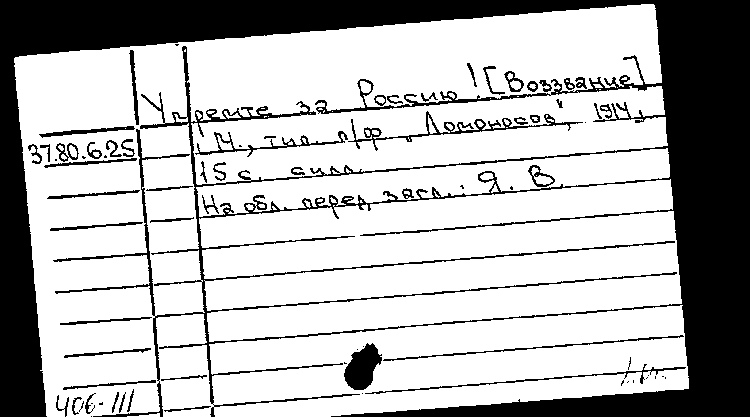 Умремте за Россию! [Воззвание]
37.80.6.25
М., тип. п/ф "Ломоносов", 1914.
15 с. илл.
На обл. перед загл.: Я. В.
406-III